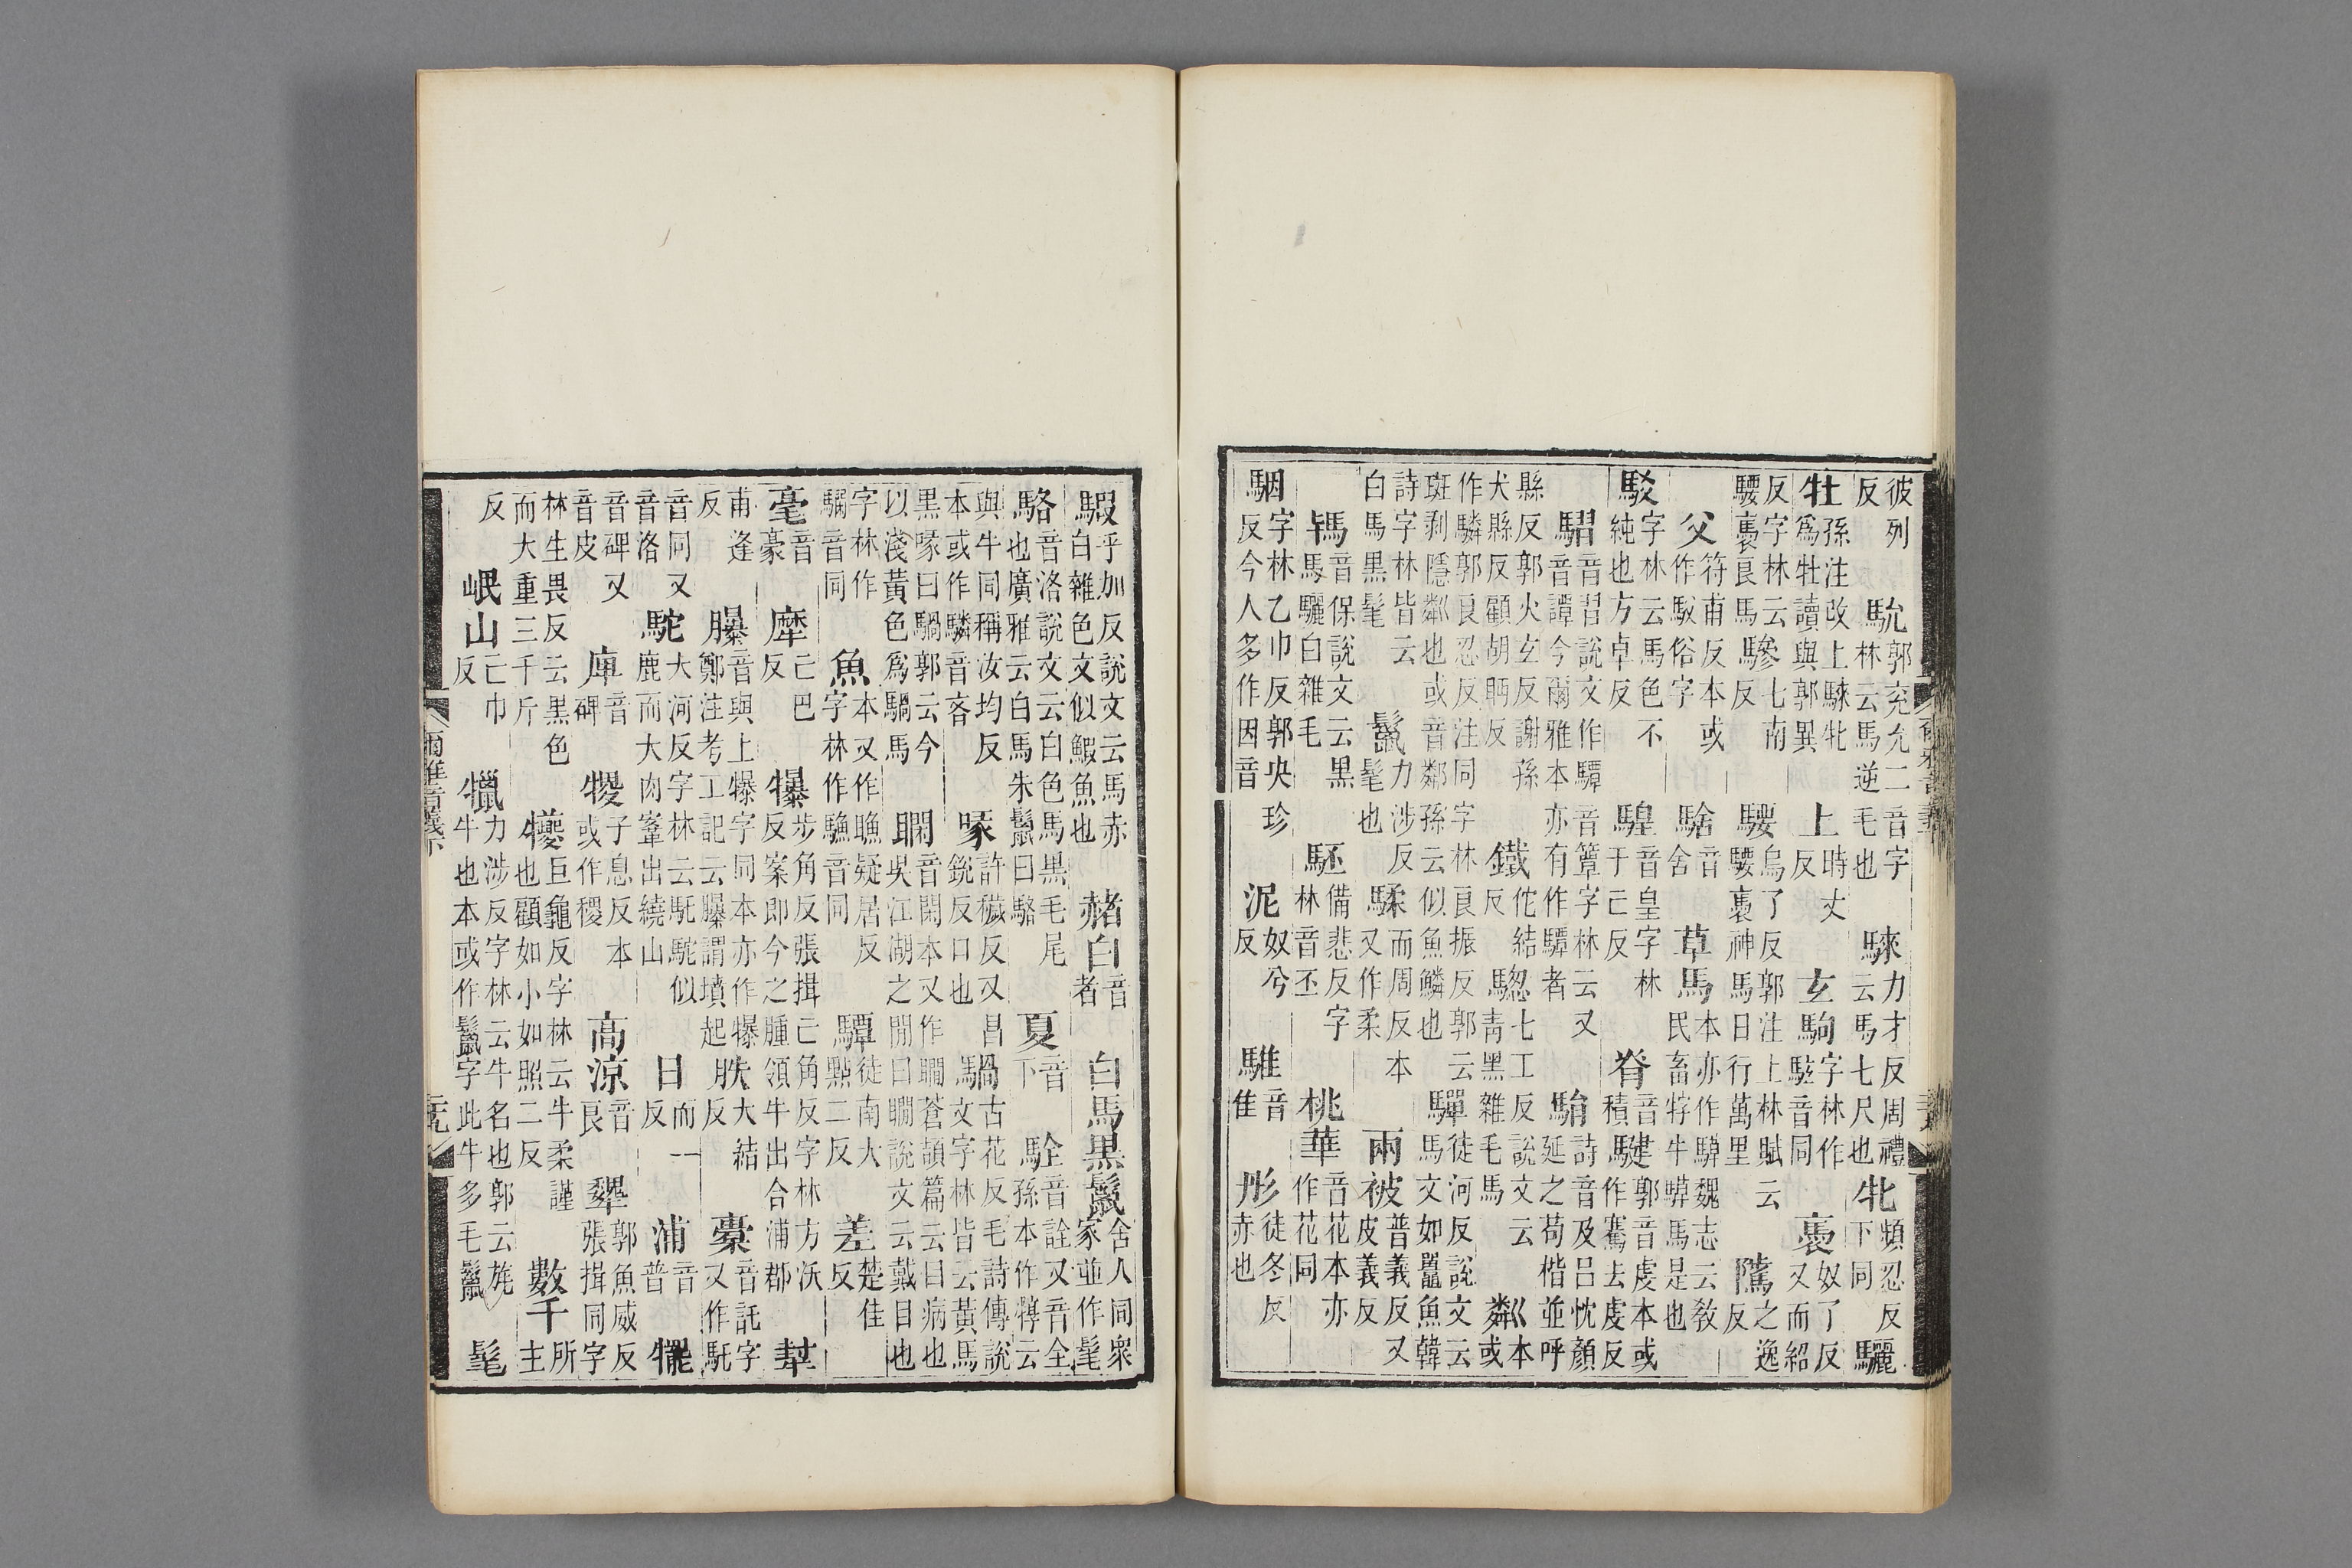 彼列反馻郭兗允二音字林云馬逆毛也騋力才反周禮云馬七尺也牝頻忍反下同驪
牡孫注改上騋牝爲牡讀與郭異上時丈反玄駒字林作駭音同褭奴了反又而紹
反字林云騕褭良馬驂七南反騕烏了反郭注上林賦云騕褭神馬日行萬里騭之逸反
父符甫反本或作駁俗字騇音舍草馬本亦作騲魏志云教民畜牸牛騲馬是也
駁字林云馬色不純也方卓反騜音皇字林于亡反脊音積騝郭音虔本或作騫去虔反
騽音習說文作驔音簟字林云又音譚今爾雅本亦有作驔者駽詩音及呂忱顏延之荀楷並呼
縣反郭火玄反謝孫犬縣反顧胡眄反鐵佗結反騘七工反說文云青黑雜毛馬粼本或
作驎郭良忍反注同字林良振反郭云斑剥隱粼也或音鄰孫云似魚鱗也驒徒河反說文云馬文如鼉魚韓
詩字林皆云白馬黑髦鬛力涉反髦也騥而周反本又作柔兩被普義反又皮義反
䮀音保說文云黑馬驪白雜毛駓備悲反字林音丕桃華音花本亦作花同
駰字林乙巾反郭央珍反今人多作因音泥奴兮反騅音隹彤徒冬反赤也
騢乎加反說文云馬赤白雜色文似鰕魚也赭白音者白馬黑鬛舍人同衆家並作髦
駱音洛說文云白色馬黑毛尾也廣雅云白馬朱鬛曰駱夏音下駩音詮又音全孫本作牷云
與牛同稱汝均反本或作驎音吝喙許穢反又昌銳反口也騧古花反毛詩傳說文字林皆云黃馬
黑喙曰騧郭云今以淺黃色爲騧馬瞷音閑本又作瞯蒼頡篇云目病也吳江湖之閒曰瞷說文云戴目也
字林作驧音同魚本又作䁩字林作䱷音同疑居反驔徒南大點二反差楚佳反
毫音豪犘亡巴反犦步角反張揖亡角反字林方沃反案即今之腫領牛出合浦郡犎
甫逢反㬥音與上犦字同本亦作犦鄭注考工記云㬥謂墳起胅大結反橐音託字又作馲
音同又音洛駝大河反字林云馲駝似鹿而大肉鞌出繞山日而一反浦音普犤
音碑又音皮庳音碑㹙子息反本或作稷高涼音良犩郭魚威反張揖同字
林生畏反云黑色而大重三千斤犪巨龜反字林云牛柔謹也顧如小如照二反數千所主
反岷山亡巾反犣力涉反字林云牛名也郭云旄牛也本或作鬛字此牛多毛鬛髦